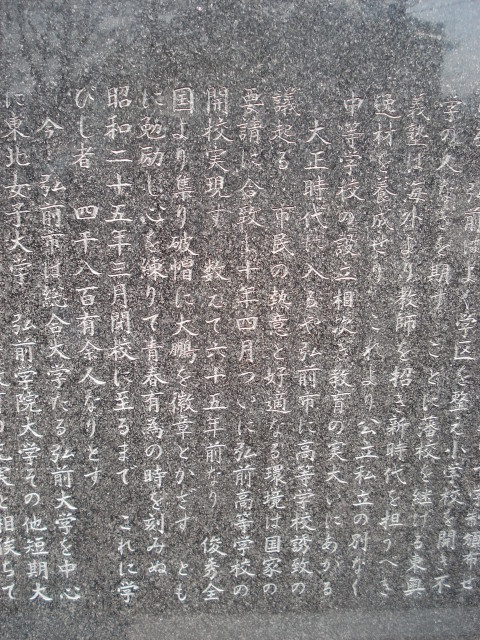 弘前はよく学区を整え小学校を開き不
学の人なきを期す ことに藩校を継げる東奥
義塾は海外より教師を招き新時代を担うべき
逸材を養成せり これより公立私立の別なく
中等学校の設立相次ぎ教育の実大いにあがる
大正時代に入るや弘前市に高等学校誘致の
議起る 市民の熱意と好適なる環境は国家の
要請に合致し十年四月ついに弘前高等学校の
開校実現す 数えて六十五年前なり 俊秀全
国より集り破帽に大鵬を徽章とかざす とも
に勉励し心を練りて青春有為の時を刻みぬ
昭和二十五年三月閉校に至るまで これに学
びし者 四千八百有余人なりとす
今 弘前市は総合大学たる弘前大学を中心
に東北女子大学 弘前学院大学その他短期大
相俟ちて